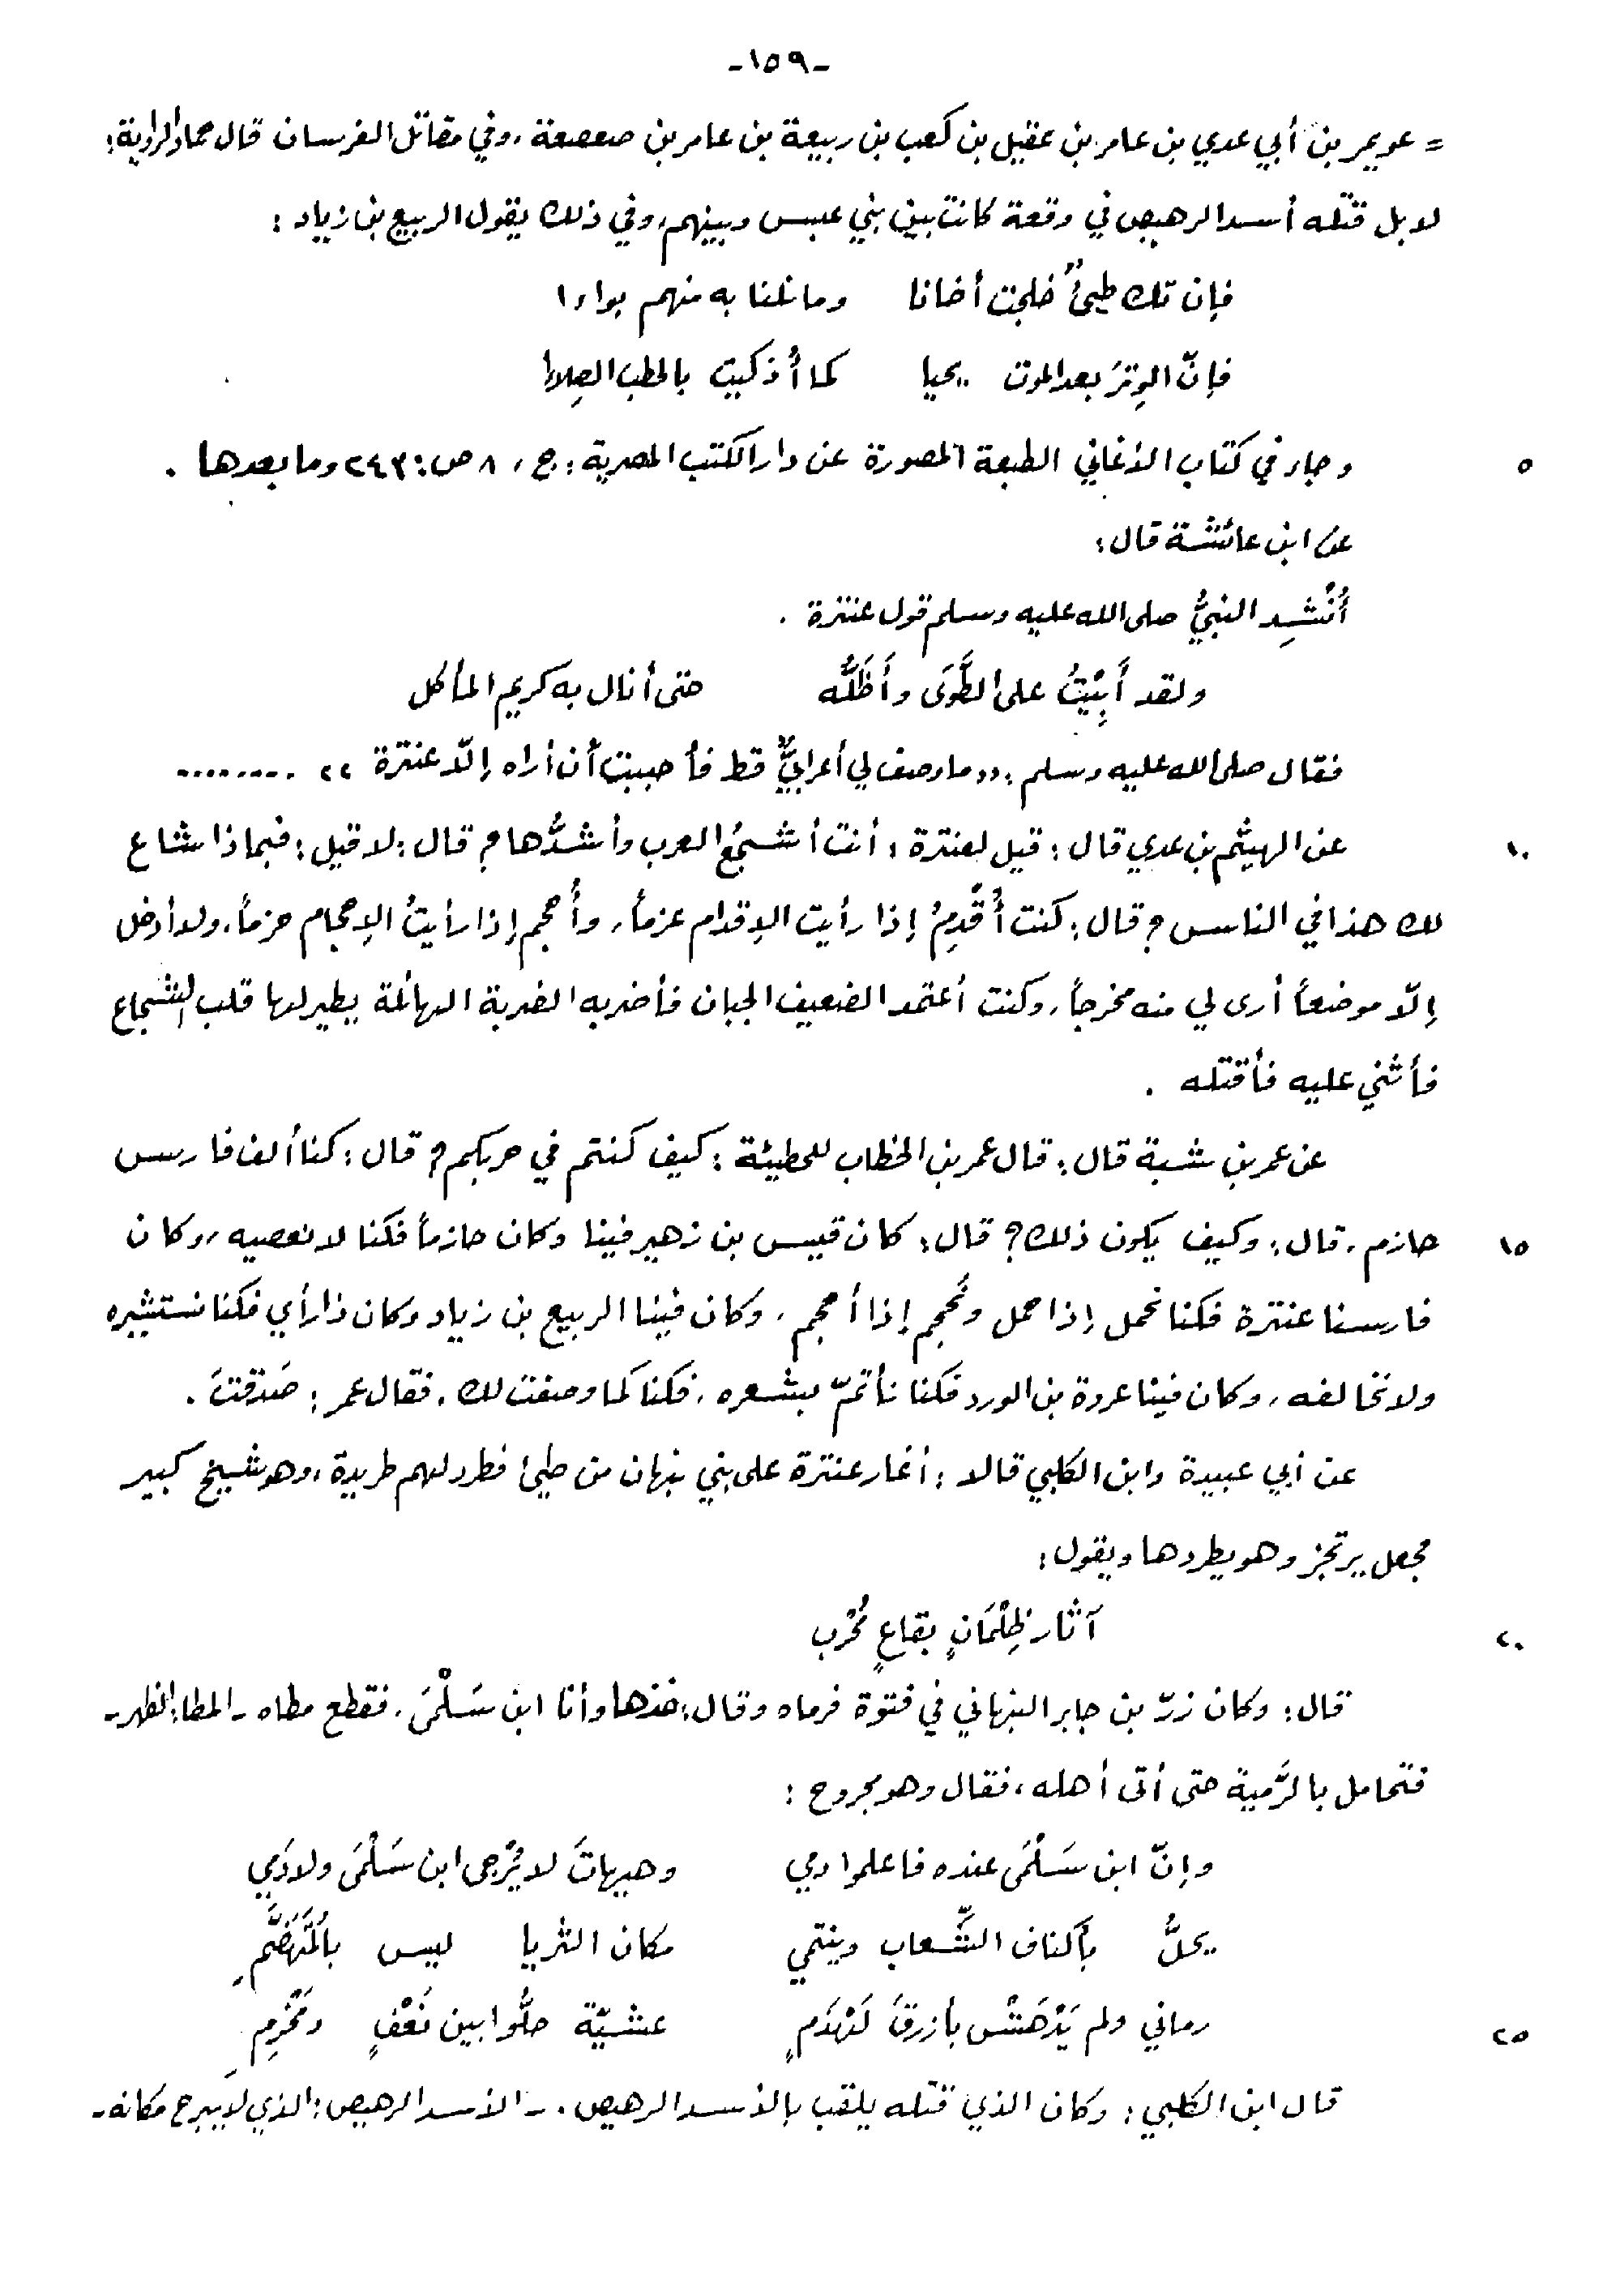 -١٥٩-
= عويمر بن أبي عدي بن عامر بن عقيل بن كعب بن ربيعة بن عامر بن صعصعة، وفي مقاتل الفرسان قال حماد الراوية:
لا بل قتله أسد الرهيص في وقعة كانت بين بني عبس وبينهم، وفي ذلك يقول الربيع بن زياد:
فإن تك طيئٌ خلجت أخانا وما نلنا به منهم بواءا
فإنّ الوِترَ بعد الموت يحيا كما أُذكيت بالحطب الصِلاءا
٥ وجاء في كتاب الأغاني الطبعة المصورة عن دار الكتب المصرية: ج، ٨ ص: ٢٤٣ وما بعدها .
عن ابن عائشة قال:
أُنْشِد النبيُّ صلى الله عليه وسلم قول عنترة .
ولقد أَبِيْتُ على الطَّوَى وأَظَلُّه حتى أنال به كريم المأكل
فقال صلى الله عليه وسلم: «ما وصف لي أعرابيٌّ قط فأحببت أن أراه إلّا عنترة» ........
١٠ عن الهيثم بن عدي قال: قيل لعنترة: أنت أشجعُ العرب وأشدُّها؟ قال: لا قيل: فبماذا شاع
لك هذا في الناس؟ قال: كنت أُقْدِمُ إذا رأيت الإقدام عزماً، وأُحجم إذا رأيتُ الإحجام حزماً، ولا أدخل
إلّا موضعاً أرى لي منه مخرجاً، وكنت أعتمد الضعيف الجبان فأضربه الضربة الهائلة يطير لها قلب الشجاع
فأثني عليه فأقتله .
عن عمر بن شبة قال: قال عمر بن الخطاب للحطيئة: كيف كنتم في حربكم؟ قال: كنا ألف فارس
١٥ حازم، قال: وكيف يكون ذلك؟ قال: كان قيس بن زهير فينا وكان حازماً فكنا لا نعصيه، وكان
فارسنا عنترة فكنا نحمل إذا حمل ونُحجم إذا أحجم، وكان فينا الربيع بن زياد وكان ذا رأي فكنا نستشيره
ولا نخالفه، وكان فينا عروة بن الورد فكنا نأتمّ بشعره، فكنا كما وصفت لك، فقال عمر: صَدقتَ .
عن أبي عبيدة وابن الكلبي قالا: أغار عنترة على بني نبهان من طيئ فطرد لهم طريدة، وهو شيخ كبير
فجعل يرتجز وهو يطردها ويقول:
٢٠ آثار ظِلْمَانٍ بقاعٍ مُحْرب
قال: وكان زرّ بن جابر النبهاني في فتوة فرماه وقال: خذها وأنا ابن سَلْمَى، فقطع مطاه - المطا: الظهر -
فتحامل بالرَّمية حتى أتى أهله، فقال وهو مجروح:
وإنّ ابن سَلْمَى عنده فاعلموا دمي وهيهاتَ لا يُرْجى ابن سَلْمَى ولا دَمي
يحلُّ بأكناف الشِّعاب وينتمي مكان الثريا ليس بالمُتَهَضَّمِ
٢٥ رماني ولم يَدْهَشْ بأزرقَ لَهْذَمٍ عشيّة حلُّوا بين نَعْفٍ ومَخْرِمِ
قال ابن الكلبي: وكان الذي قتله يلقب بالأسد الرهيص . - الأسد الرهيص: الذي لا يبرح مكانه -